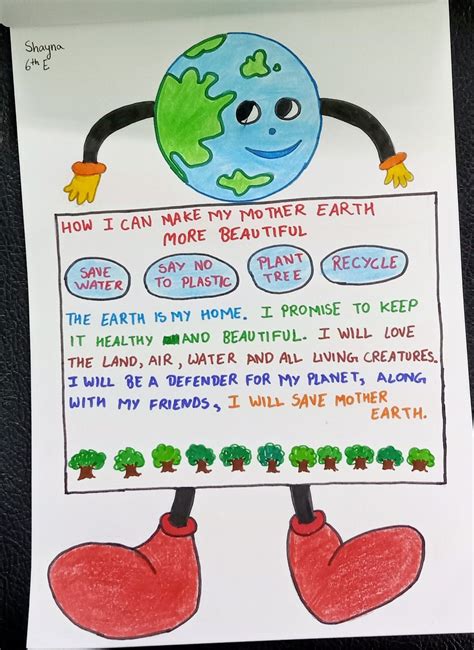 Shayna
6th E
HOW I CAN MAKE MY MOTHER EARTH
MORE BEAUTIFUL
SAVE
WATER
SAY NO
TO PLASTIC
PLANT
TREE
RECYCLE
THE EARTH IS MY HOME. I PROMISE TO KEEP
IT HEALTHY AND BEAUTIFUL. I WILL LOVE
THE LAND, AIR, WATER AND ALL LIVING CREATURES.
I WILL BE A DEFENDER FOR MY PLANET, ALONG
WITH MY FRIENDS, I WILL SAVE MOTHER
EARTH.